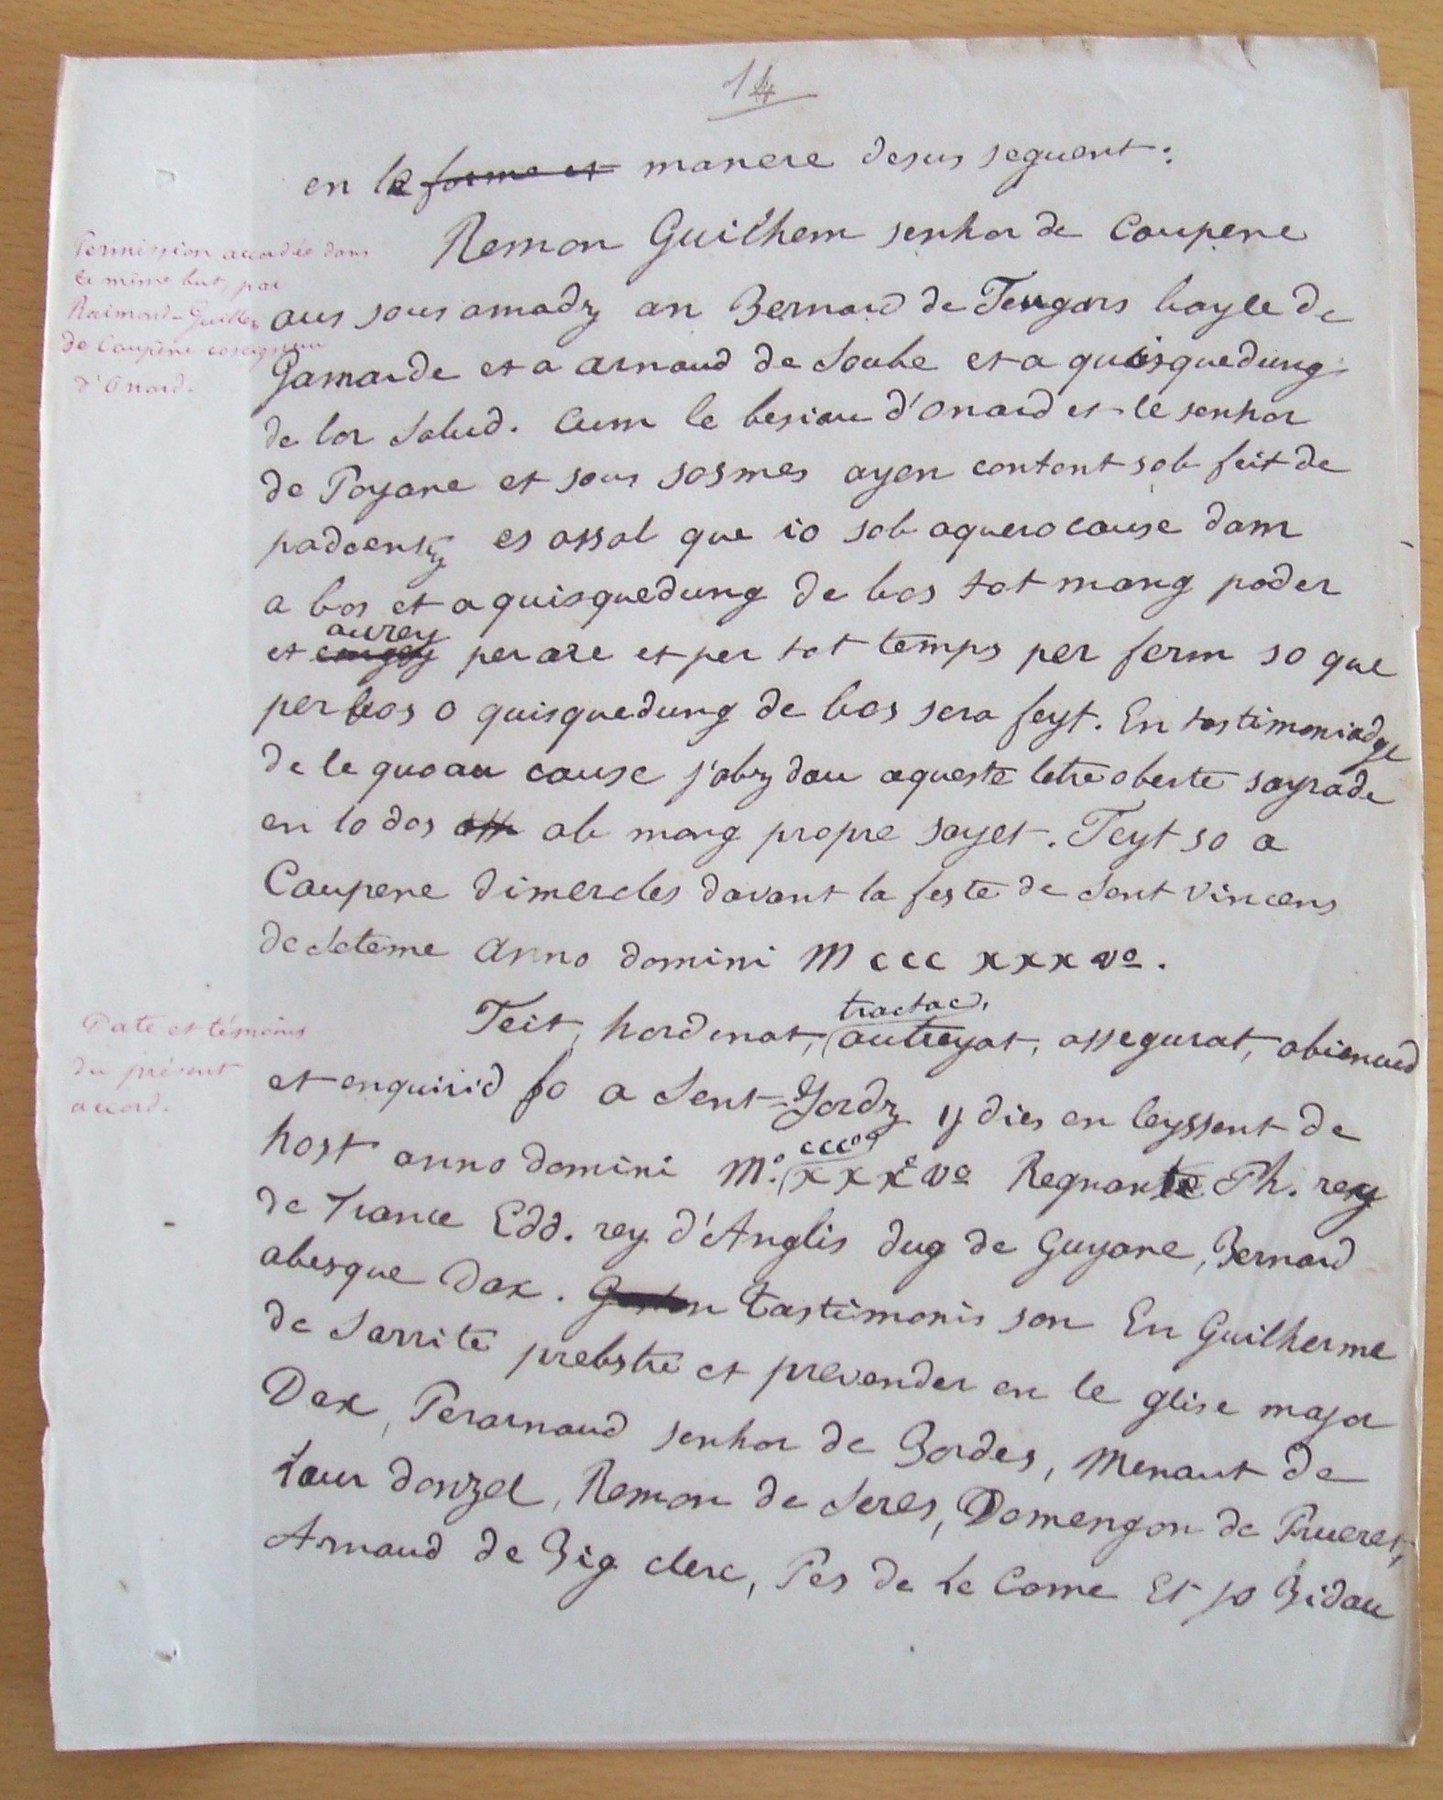 14
en le forme et manere desus seguent :
Permission accordée dans
le même but, par
Raimond-Guilhem
de Caupène coseigneur
d'Onard.
Remon Guilhem senhor de Caupene
aus sous amadz an Bernard de Teugars bayle de
Gamarde et a arnaud de Soube et a quisquedung
de lor Salud. Cum le besiau d'Onard et le senhor
de Poyane et sous sosmes ayen content sob feit de
padoentz es assal que io sob aquero cause dam
a bos et a quisquedung de bos tot mang poder
et autrey per are et per tot temps per ferm so que
per bos o quisquedung de bos sera feyt. En testimoniadge
de le quoau cause j'abz dau aqueste letre oberte sayrade
en lo dos ab mang propre sayet. Feyt so a
Caupene dimercles davant la feste de Sent Vincens
de Seteme anno domini M ccc xxx vº.
Date et témoins
du présent
accord.
Feit, hordenat, tractad, autreyat, assegurat, abienud
et enquirid fo a Sent-Jordz ij dies en leyssent de
host anno domini Mº. cccº xxxº vº Regnante Ph. rey
de France Edd. rey d'Anglis dug de Guyane, Bernard
abesque Dax. Tastimonis son En Guilherme
de Sarrite prebstre et prevender en le glise major
Dax, Perarnaud senhor de Bordes, Menaut de
Laur donzel, Remon de Seres, Domengon de Prueret,
Arnaud de Big clerc, Pes de Le Come Et jo Bidau